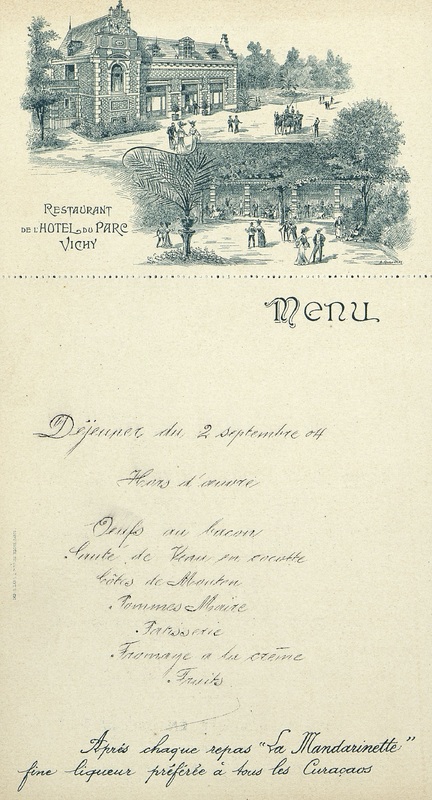 RESTAURANT
DE L'HOTEL DU PARC
VICHY
Menu
Déjeuner du 2 septembre 04
Hors d'œuvre
Oeufs au bacon
Sauté de Veau en cocotte
Côtes de Mouton
Pommes Maire
Patisserie
Fromage a la crème
Fruits
Après chaque repas "La Mandarinette"
fine liqueur préférée à tous les Curaçaos